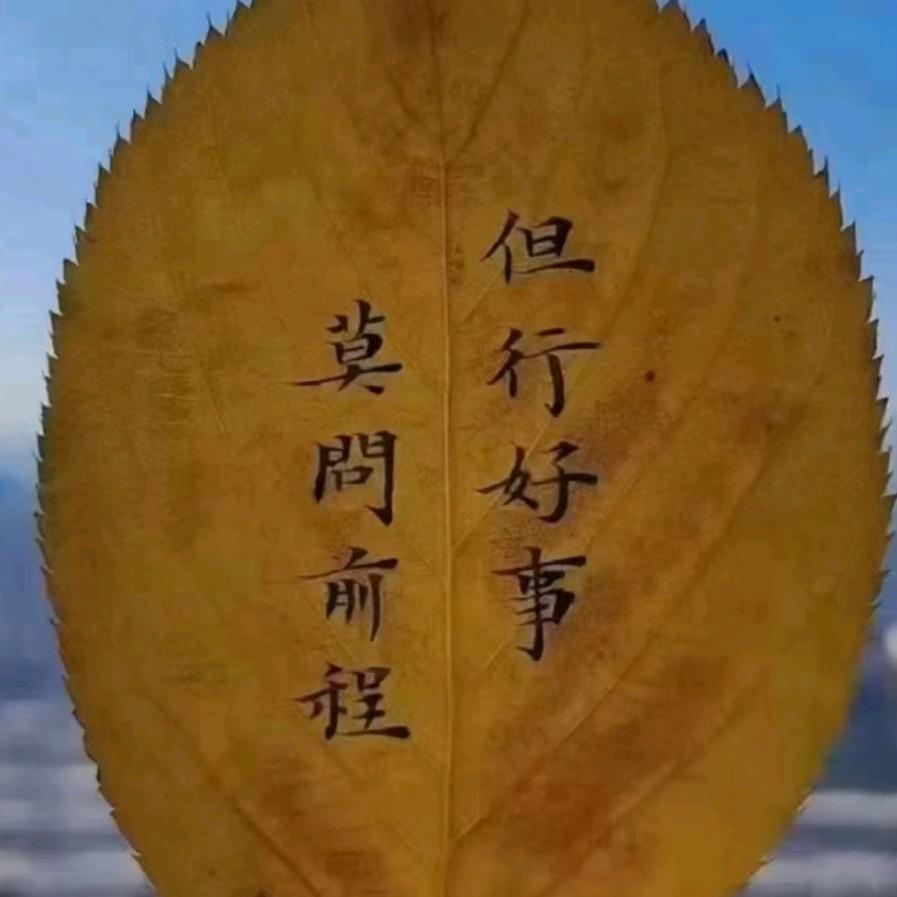 但行好事
莫問前程